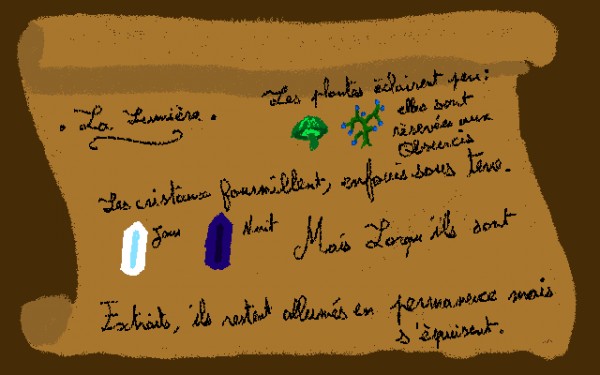 . La Lumière .
Les plantes éclairent peu :
elles sont
réservées aux
Obscurcis
Les cristaux fourmillent, enfouis sous terre.
Jour
Nuit
Mais Lorsqu'ils sont
Extraits, ils restent allumés en permanence mais
s'épuisent.